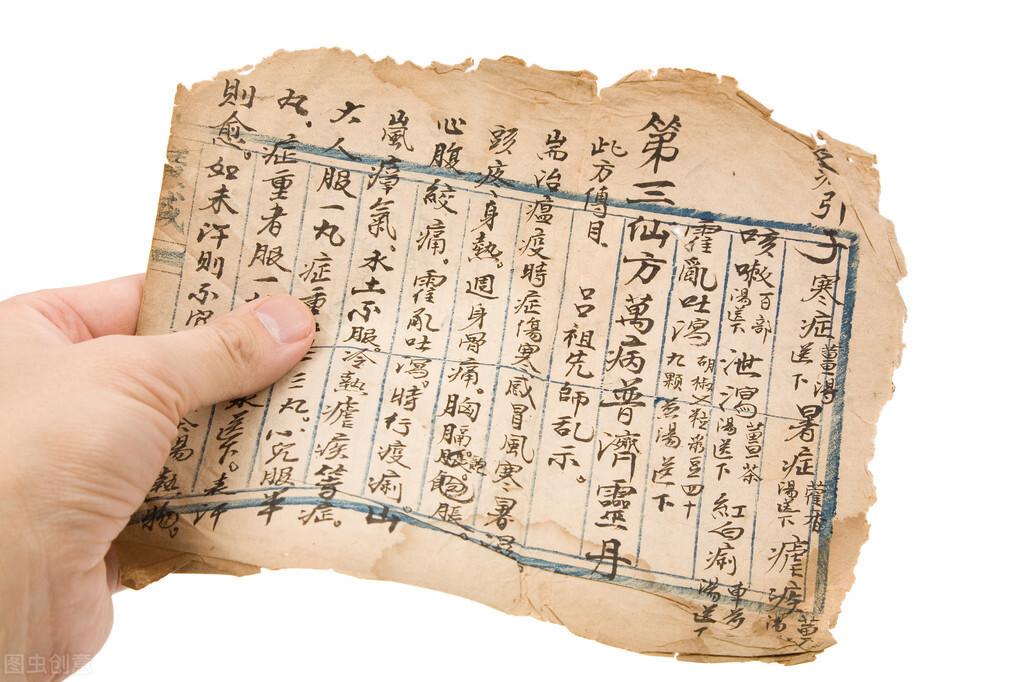 引子寒症薑湯送下暑症藿香湯送下瘧疾薑湯
咳嗽百部湯送下泄瀉薑茶湯送下紅白痢車前湯送下
霍亂吐瀉胡椒七粒菉豆四十九顆煎湯送下
第三仙方萬病普濟靈丹
此方傳自呂祖先師乩示。
耑治瘟疫時症傷寒感冒風寒暑濕
頭疼身熱。週身骨痛。胸膈飽脹。
心腹絞痛。霍乱吐瀉。時行疫痢。山
嵐瘴氣。水土不服。冷熱瘧疾等症。
大人服一丸症重
丸、症重者服一三丸。小兒服半
則愈。如未汗則不送下。未汗
湯熱物。
图虫创意